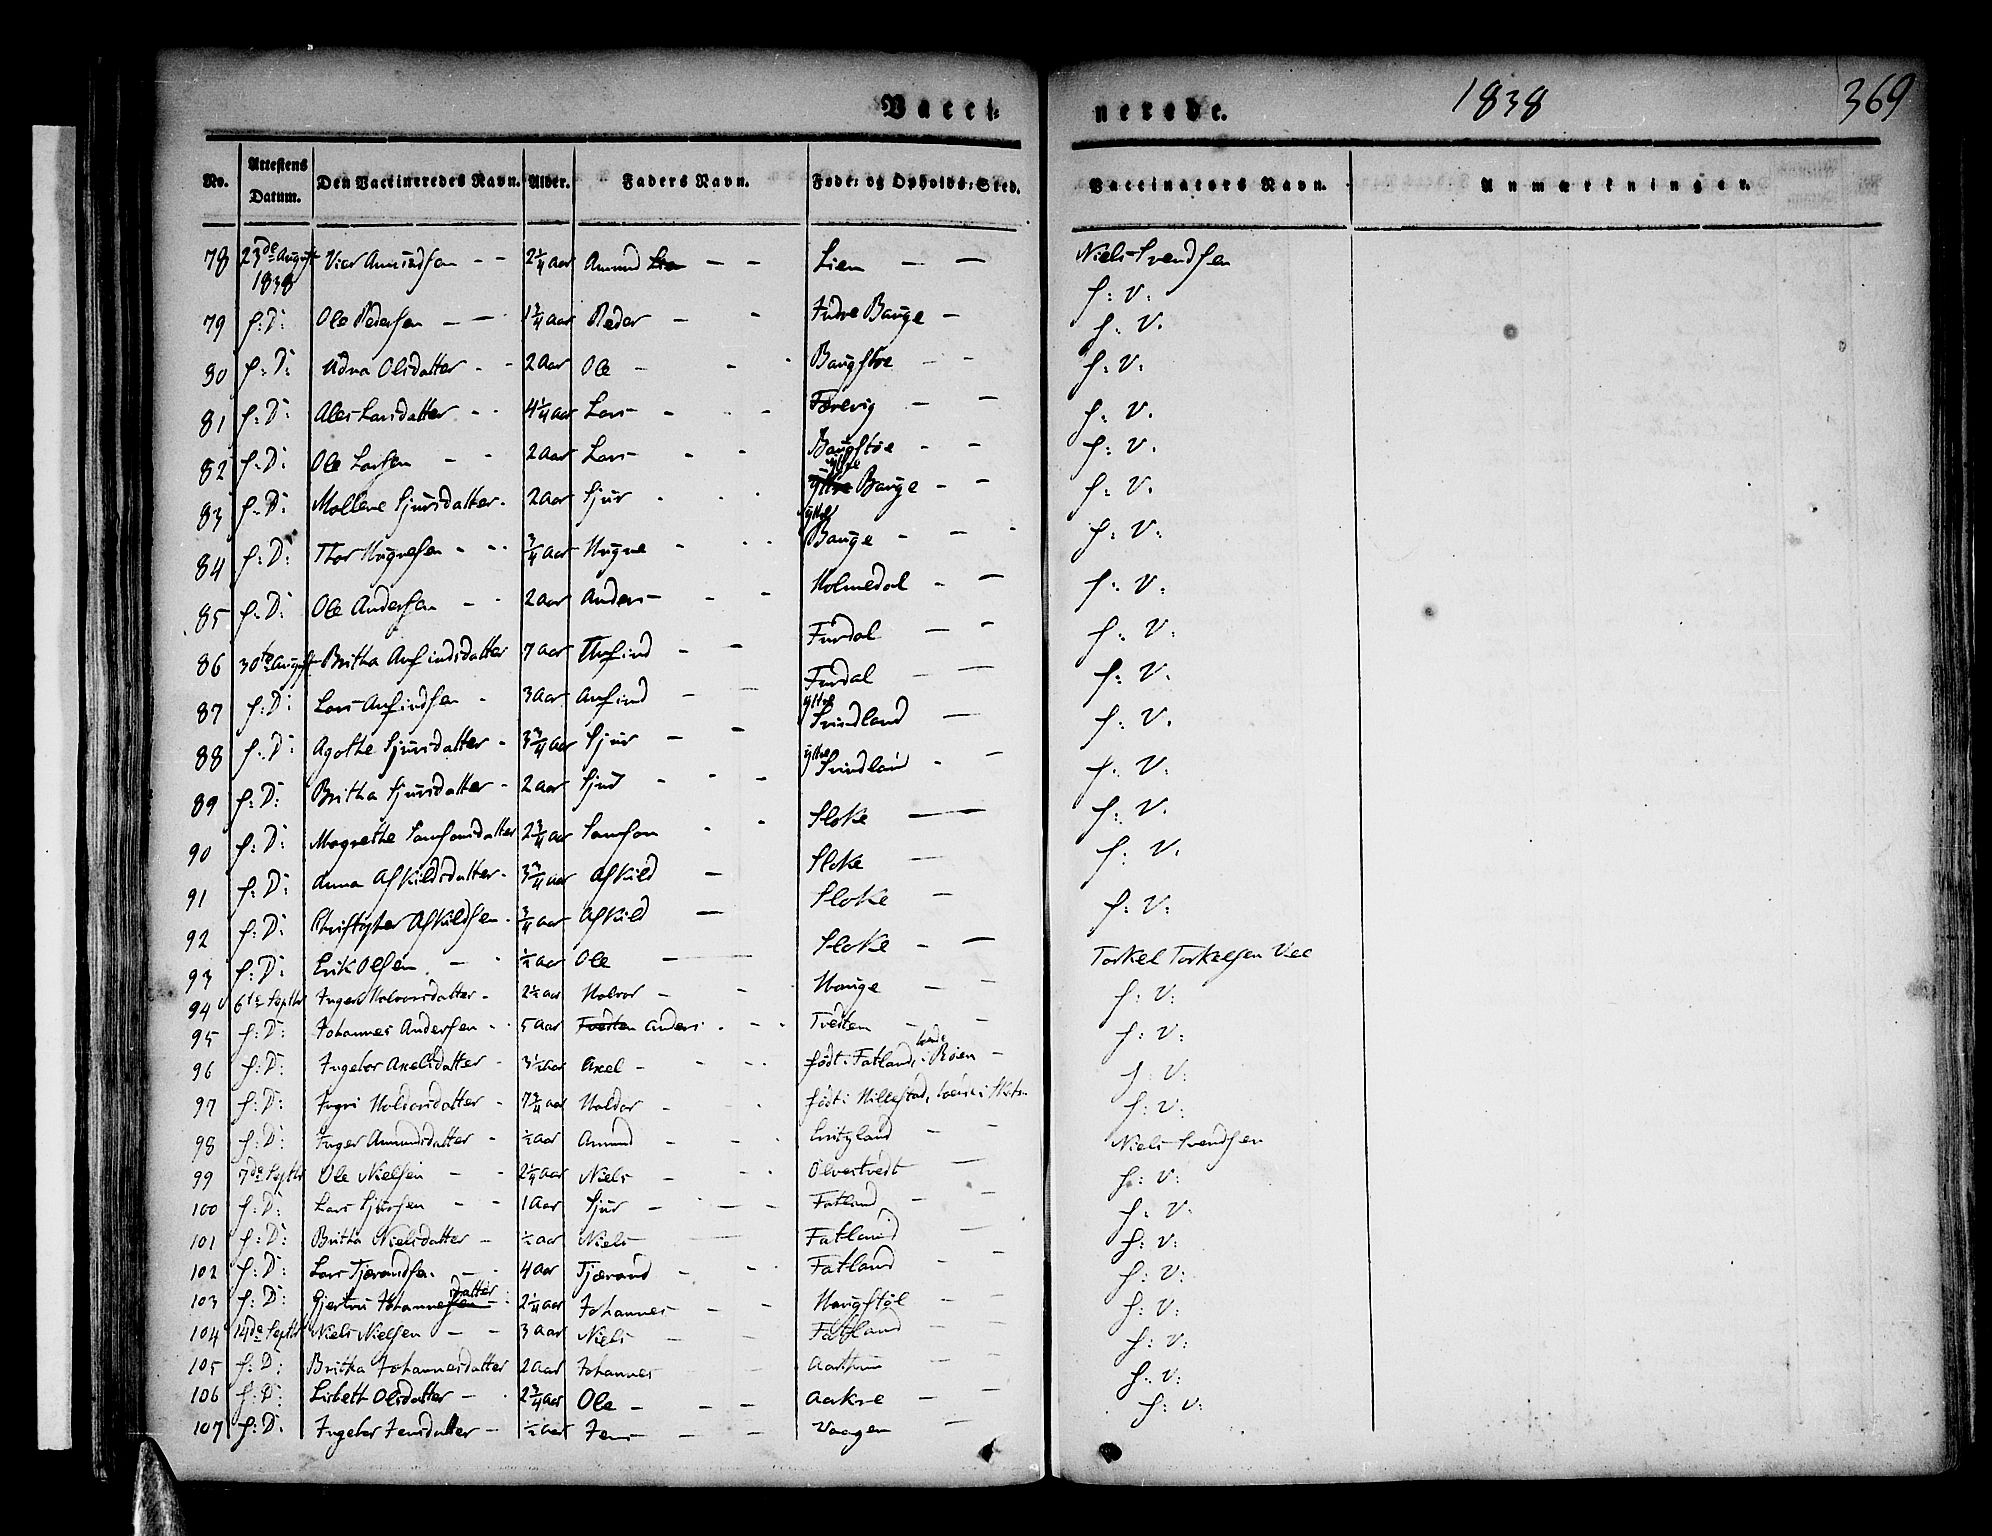 Vacci-
nerede.
1838
369
No. Attestens Datum. Den Vaccineredes Navn. Alder. Faders Navn. Føde- og Opholds-Sted. Vaccinators Navn. Anmærkninger.
78 23de August 1838 Amundsen - - 2 1/4 Aar Amund - - Lien - - Niels Svendsen
79 s: D: Ole Pedersen - - 1 3/4 Aar Peder - - Indre Bauge - s: V:
80 s: D: Olsdatter - - 2 Aar Ole - - Baugstøe - - s: V.
81 s: D: Larsdatter - - 4 1/4 Aar Lars - - - s: V:
82 s: D: Ole Larsen - - 2 Aar Lars - - Baugstøe - - s: V.
83 s: D: Sjursdatter - 2 Aar Sjur - - yttre Bauge - - s: V.
84 s: D: Thor Mognesen - - 3/4 Aar Mogne - - yttre Bauge - - s: V.
85 s: D: Ole Andersen - - 2 Aar Anders - - Holmedal - - s: V:
86 30te August Britha Anfindsdatter 7 Aar Anfind - - Furdal - - s: V.
87 s: D: Lars Anfindsen - 3 Aar Anfind - - Furdal - - s: V:
88 s: D: Agathe Sjursdatter - 3 3/4 Aar Sjur - - yttre Svindland - s: V.
89 s: D: Britha Sjursdatter - 2 Aar Sjur - - yttre Svindland - - s: V.
90 s: D: Magrethe Samsonsdatter 2 3/4 Aar Samson - - Sloke - s: V.
91 s: D: Anna Askildsdatter - 3 3/4 Aar Askild - Sloke - s: V.
92 s: D: Christopher Askildsen - 3/4 Aar Askild - Sloke - s: V.
93 s: D: Erik Olsen - - 1/2 Aar Ole - - Sloke - - s: V:
94 6te Septbr Inger Halvorsdatter - 2 1/2 Aar Halvor - - Hauge - - Torkel Torkelsen
95 s: D: Johannes Andersen - 5 Aar Tvedten Anders - - Tvedten - - s: V:
96 s: D: Ingebor Axelsdatter - 3 1/2 Aar Axel - - født i Fatland, i Røien - s: V:
97 s: D: Ingri Haldorsdatter - 7 3/4 Aar Haldor - - født i Hillestad, s: V:
98 s: D: Inger Amundsdatter - 1/2 Aar Amund - - - - s: V:
99 7de Septbr Ole Nielsen - - 2 1/4 Aar Niels - - Ølvestvedt - - Niels Svendsen
100 s: D: Lars Sjursen - - 1 Aar Sjur - - Fatland - - s: V:
101 s: D: Britha Nielsdatter - 1/2 Aar Niels - Fatland - s: V:
102 s: D: Lars Tjerandsen - - 4 Aar Tjerand - - Fatland - - s: V:
103 s: D: Gjertru Johannesen datter - 2 1/4 Aar Johannes - - Haugstøl - - s: V:
104 14de Septbr Niels Nielsen - - 3 Aar Niels - - Fatland - - s: V:
105 s: D: Britha Johannesdatter 2 Aar Johannes - - - s: V:
106 s: D: Lisbeth Olsdatter - 2 3/4 Aar Ole - - - Aakre - - s: V:
107 s: D: Ingebor Jensdatter - 1/2 Aar Jens - - Vaagen - s: V: